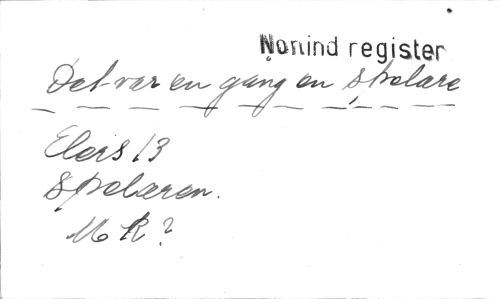 Nonind register
Det var en gang en spelare
Elers 13
Spelaren.
M R ?